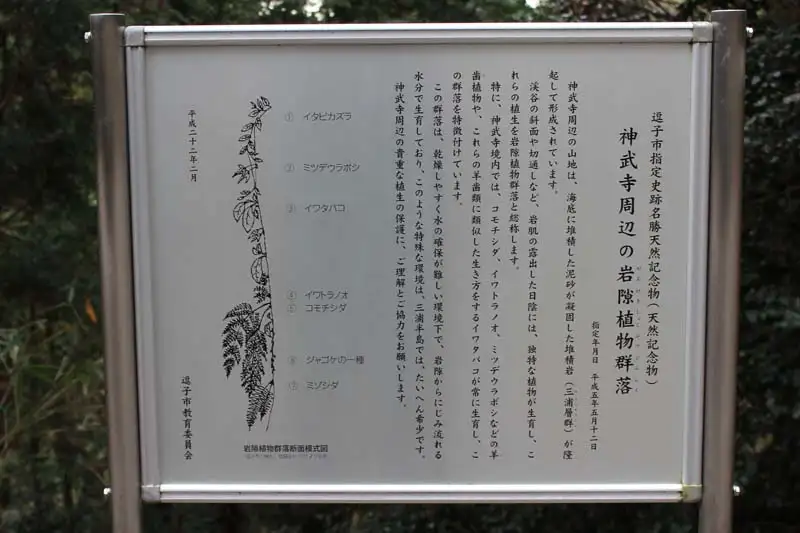 逗子市指定史跡名勝天然記念物(天然記念物)
神武寺周辺の岩隙植物群落
がんげきしょくぶつぐんらく
指定年月日 平成五年五月十二日
神武寺周辺の山地は、海底に堆積した泥砂が凝固した堆積岩(三浦層群)が隆
起して形成されています。
渓谷の斜面や切通しなど、岩肌の露出した日陰には、独特な植物が生育し、こ
れらの植生を岩隙植物群落と総称します。
特に、神武寺境内では、コモチシダ、イワトラノオ、ミツデウラボシなどの羊
歯植物や、これらの羊歯類に類似した生き方をするイワタバコが常に生育し、こ
の群落を特徴付けています。
この群落は、乾燥しやすく水の確保が難しい環境下で、岩隙からにじみ流れる
水分で生育しており、このような特殊な環境は、三浦半島では、たいへん希少です。
神武寺周辺の貴重な植生の保護に、ご理解とご協力をお願いします。
① イタビカズラ
② ミツデウラボシ
③ イワタバコ
④ イワトラノオ
⑤ コモチシダ
⑥ ジャゴケの一種
⑦ ミゾシダ
岩隙植物群落断面模式図
平成二十二年二月
逗子市教育委員会